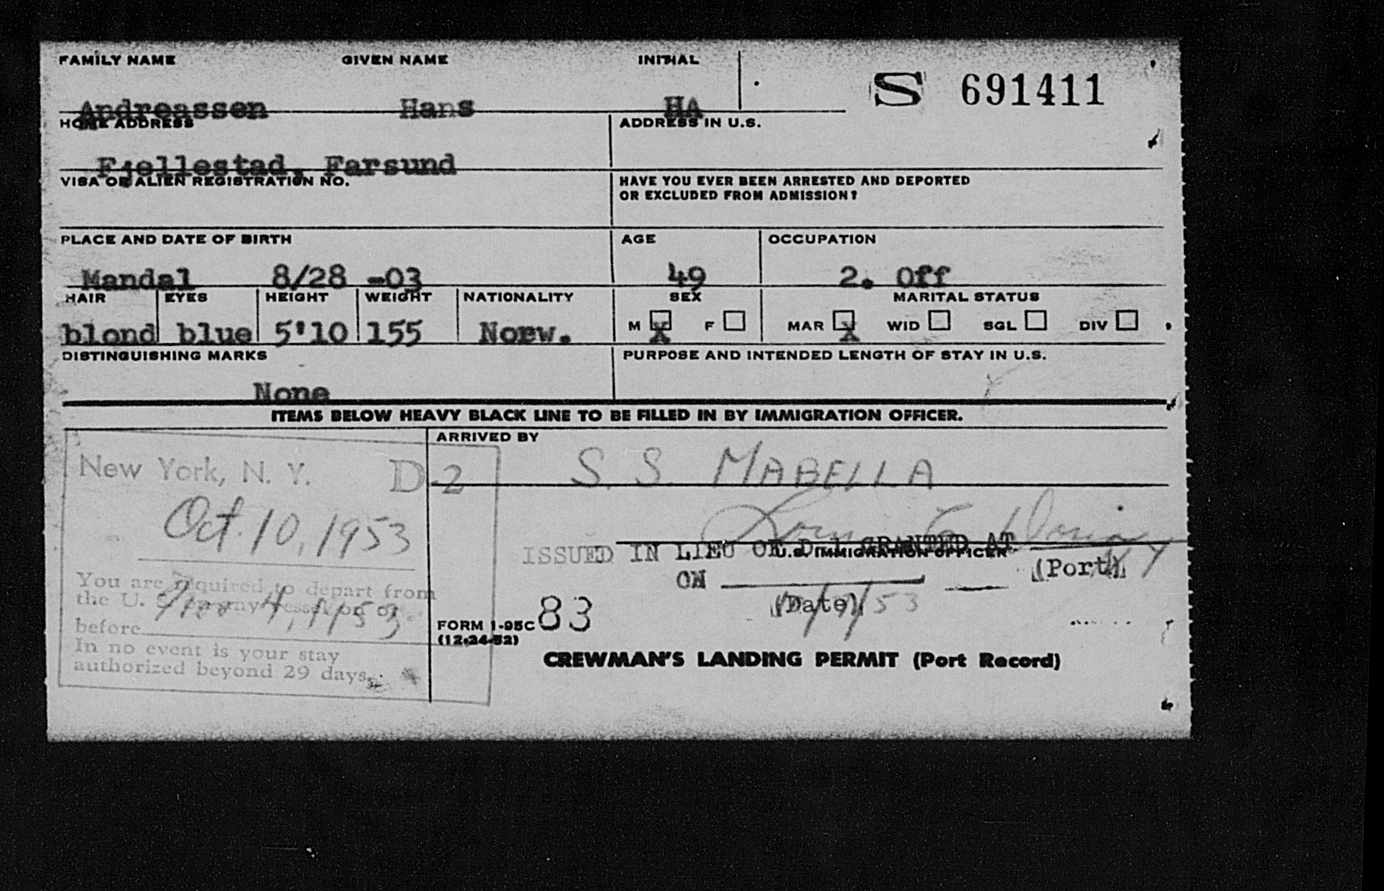 FAMILY NAME GIVEN NAME INITIAL
S 691411
Andreassen Hans HA
HOME ADDRESS ADDRESS IN U.S.
Fjellestad, Farsund
VISA OR ALIEN REGISTRATION NO. HAVE YOU EVER BEEN ARRESTED AND DEPORTED
OR EXCLUDED FROM ADMISSION?
PLACE AND DATE OF BIRTH AGE OCCUPATION
Mandal 8/28 -03 49 2. Off
HAIR EYES HEIGHT WEIGHT NATIONALITY SEX MARITAL STATUS
blond blue 5'10 155 Norw. M X F MAR X WID SGL DIV
DISTINGUISHING MARKS PURPOSE AND INTENDED LENGTH OF STAY IN U.S.
None
ITEMS BELOW HEAVY BLACK LINE TO BE FILLED IN BY IMMIGRATION OFFICER.
ARRIVED BY
New York, N. Y. D-2 S. S. MABELLA
Oct. 10, 1953
ISSUED IN LIEU OF D-1 GRANTED AT
U.S. IMMIGRATION OFFICER
(Port)
ON
(Date)
You are required to depart from
the U. S.
before
In no event is your stay
authorized beyond 29 days.
FORM I-95C 83
(12-24-52)
CREWMAN'S LANDING PERMIT (Port Record)